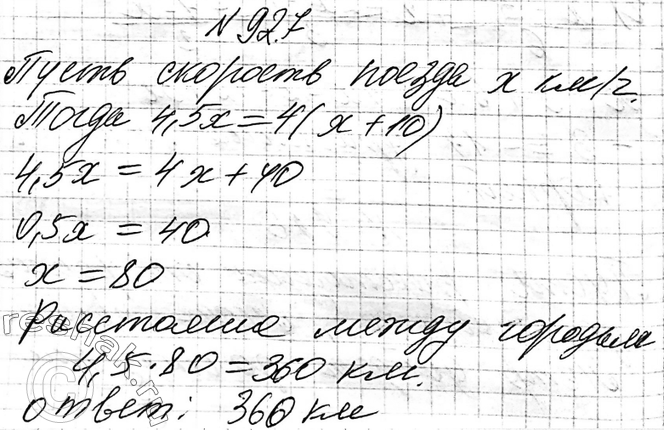 N 927
Пусть скорость поезда x км/ч.
Тогда 4,5x = 4(x+10)
4,5x = 4x+40
0,5x = 40
x = 80
Расстояние между городами
4,5·80 = 360 км.
ответ: 360 км
reshak.ru